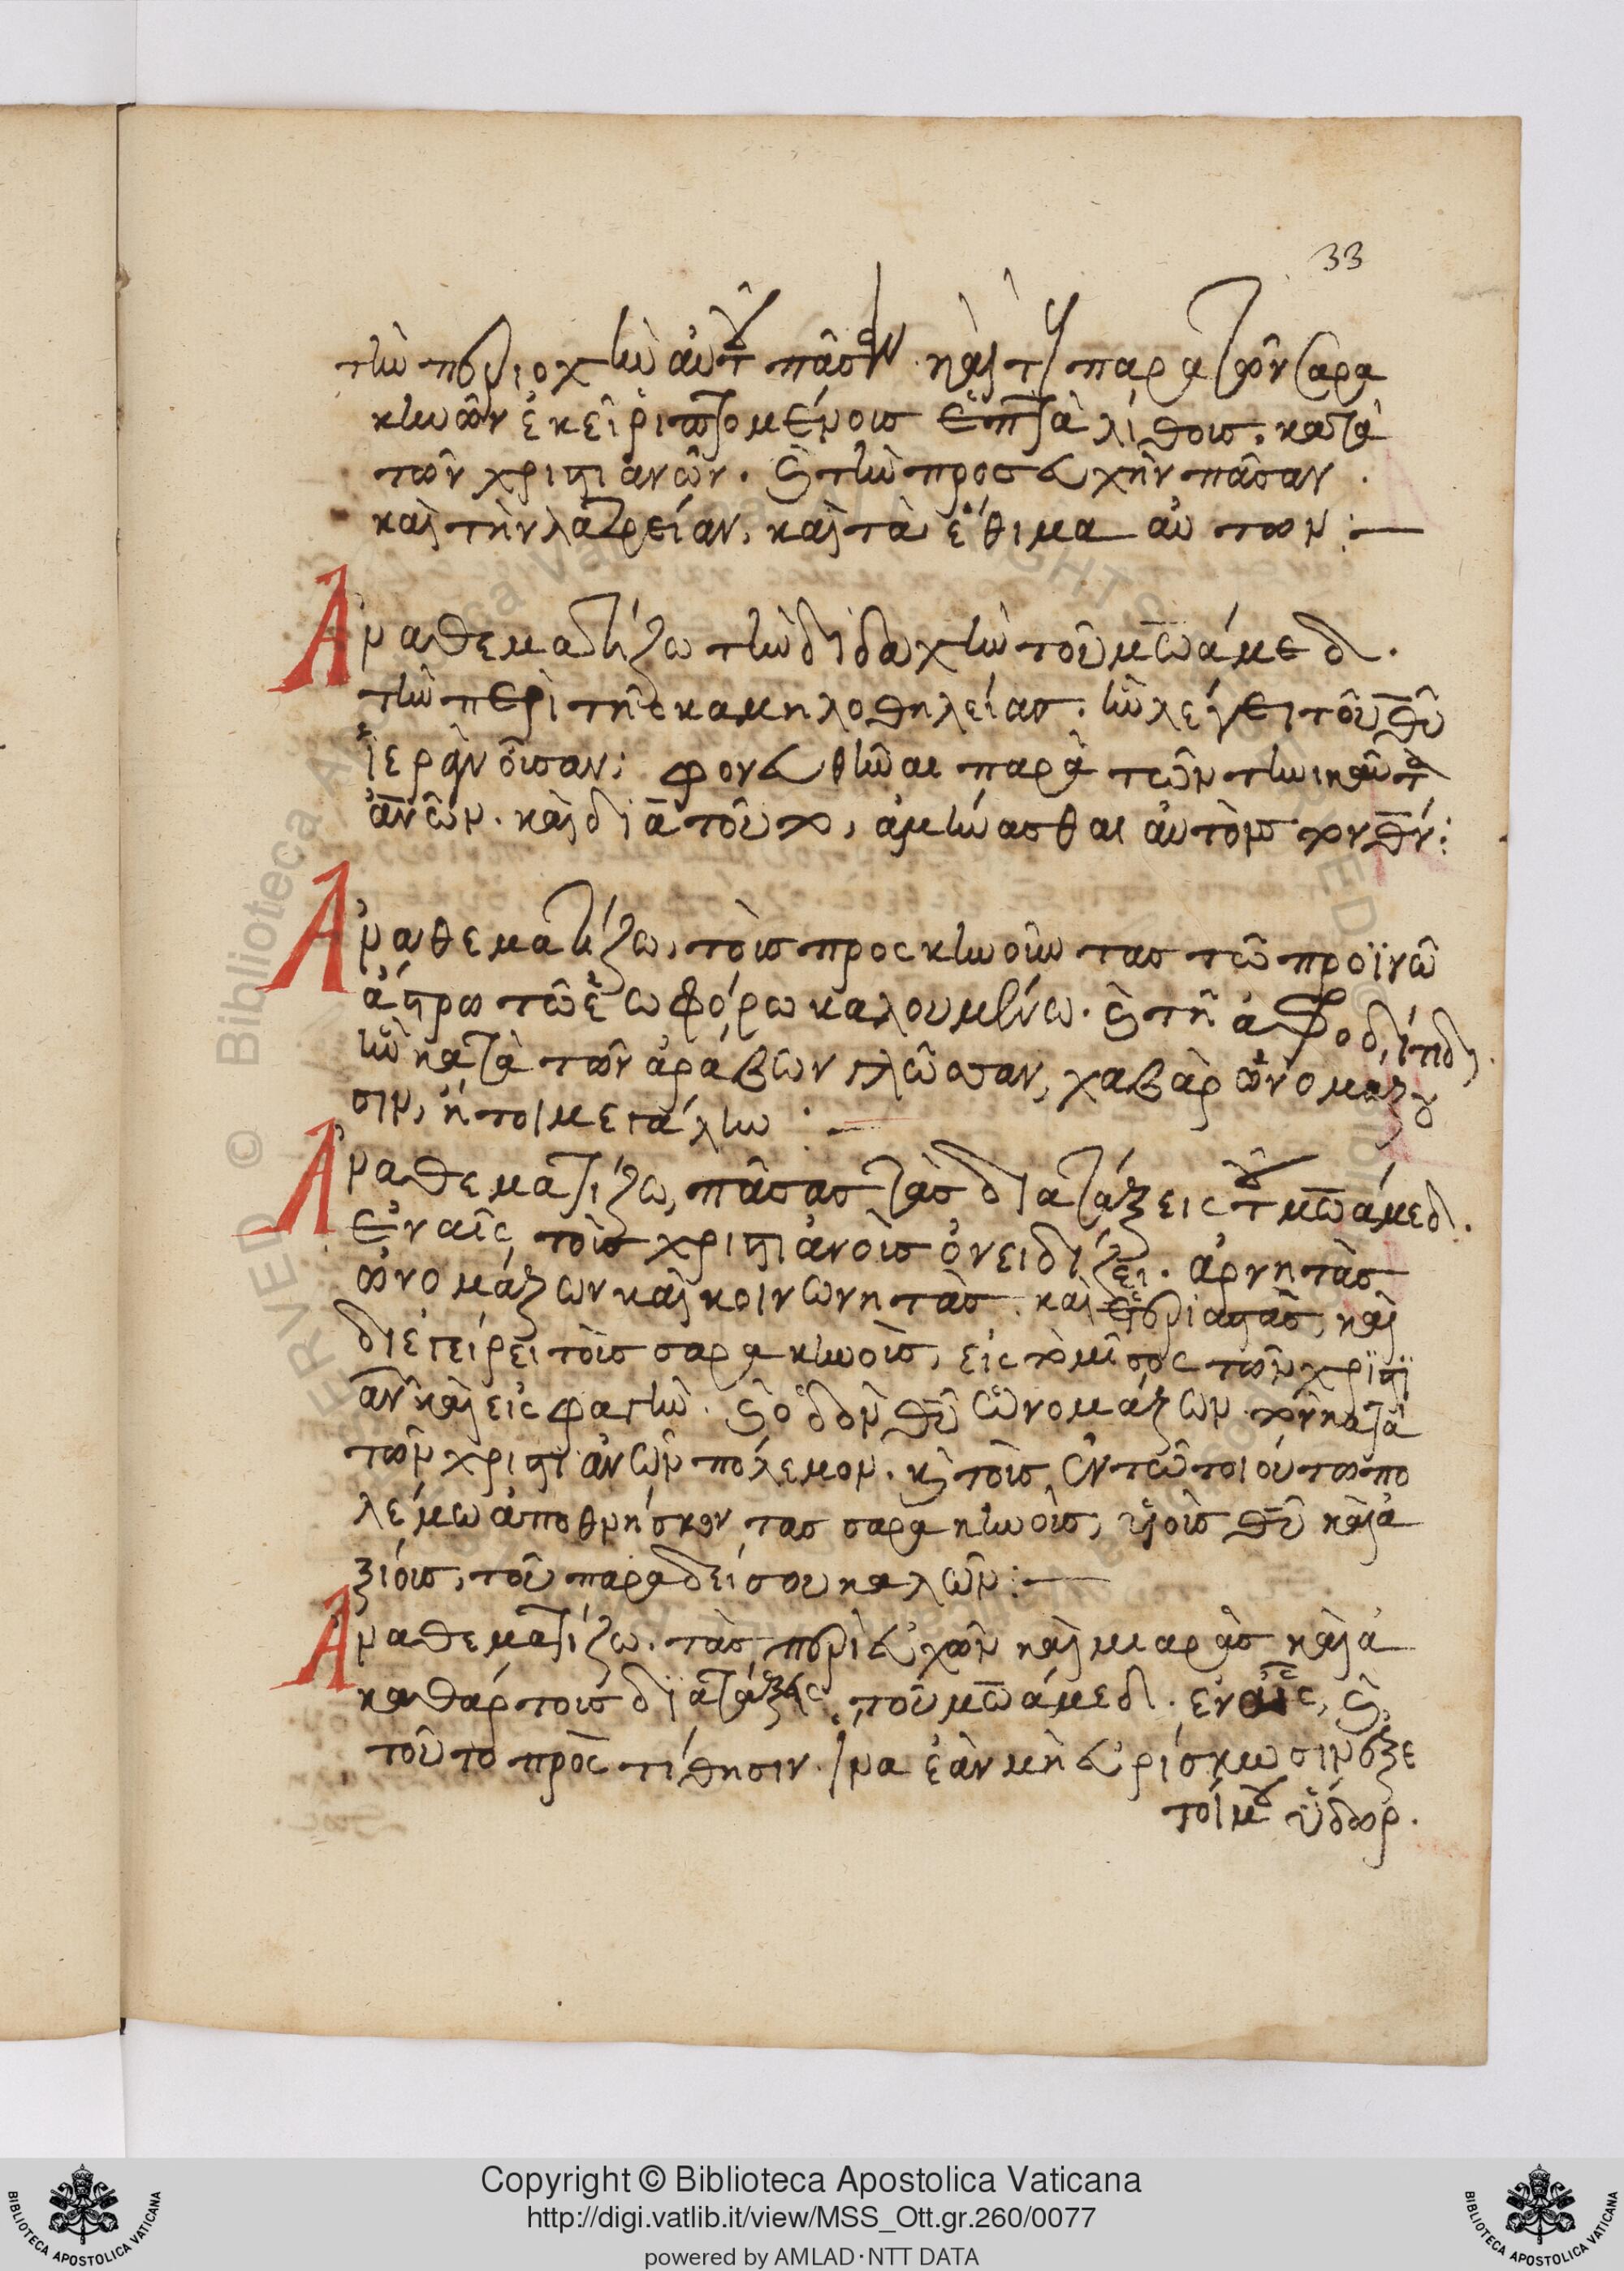 33
τὴν περιοχὴν αὐτοῦ πᾶσαν. καὶ τοῖς παρὰ τῶν σαρα
κηνῶν ἐκεῖ ῥιπτομένοις ἑπτὰ λίθοις, κατὰ
τῶν χριστιανῶν. καὶ τὴν προσευχὴν πᾶσαν.
καὶ τὴν λατρείαν, καὶ τὰ ἔθιμα αὐτων:—
Ἀναθεματίζω τὴν διδαχὴν τοῦ μωάμεδ.
τὴν περὶ τῆς καμηλοθηλείας. ἣν λέγει τοῦ θῦ
ἱερὰν οὖσαν; φονευθῆναι παρὰ τῶν τηνικαῦτα
ἀνῶν. καὶ διὰ τοῦτο, ἀμύνασθαι αὐτοὺς τὸν θν:
Ἀναθεματίζω, τοὺς προσκυνοῦντας τῶ προϊνῶ
ἄστρω τῶ ἑωσφόρω καλουμένω. καὶ τῆ ἀφροδίτιδι.
ἣν κατὰ τῶν ἀράβων γλῶσσαν, χαβὰρ ὀνομάζου
σιν, ἤτοι μεγάλην:—
Ἀναθεματίζω, πάσας τὰς διατάξεις τοῦ μωάμεδ.
ἐν αἷς, τοὺς χριστιανοὺς ὀνειδίζει. ἀρνητὰς
ὀνομάζων καὶ κοινωνητὰς. καὶ ἑταιριαστὰς, καὶ
διεγείρει τοὺς σαρακηνοὺς, εἰς τὸ μῖσος τῶν χριστι
ανῶν καὶ εἰς σφαγὴν. καὶ ὁδὸν θῦ ὠνομάζων τὸν κατὰ
τῶν χριστιανῶν πόλεμον. καὶ τοὺς ἐν τῶ τοιούτω πο
λέμω ἀποθνήσκοντας σαρακηνοὺς, υἱοὺς θῦ καὶ ἀ
ξίους, τοῦ παραδείσου καλῶν:—
Ἀναθεματίζω. τὰς περὶ εὐχῶν καὶ μιαρὰς καὶ ἀ
καθάρτους διατάξεις, τοῦ μωάμεδ. ἐν αἷς, καὶ
τοῦτο πρὸς τίθησιν. ἵνα ἐὰν μὴ εὑρίσκωσιν οἱ ἐξε
τοίμου ὕδωρ.
Copyright © Biblioteca Apostolica Vaticana
http://digi.vatlib.it/view/MSS_Ott.gr.260/0077
powered by AMLAD·NTT DATA
BIBLIOTECA APOSTOLICA VATICANA
BIBLIOTECA APOSTOLICA VATICANA